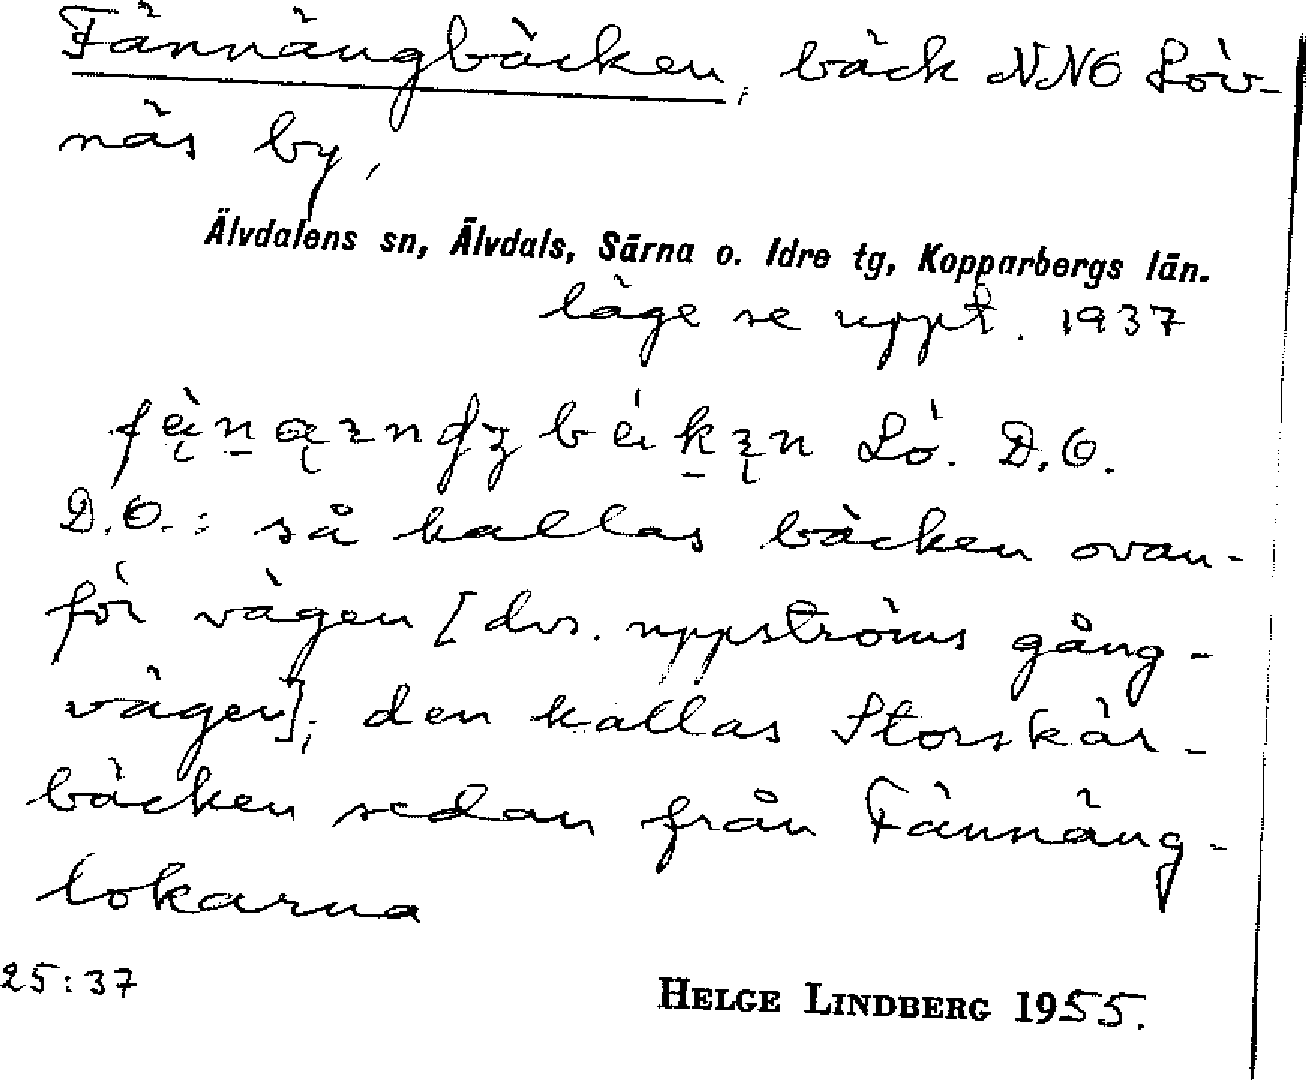 Fännängbäcken, bäck NNO Löv-
näs by,
Älvdalens sn, Älvdals, Särna o. Idre tg, Kopparbergs län.
läge se uppt. 1937
Lö. D.O.
D.O.: så kallas bäcken ovan-
för vägen [dvs. uppströms gång-
vägen]; den kallas Storskär-
bäcken sedan från Fännäng-
lokarna
25:37
HELGE LINDBERG 1955.